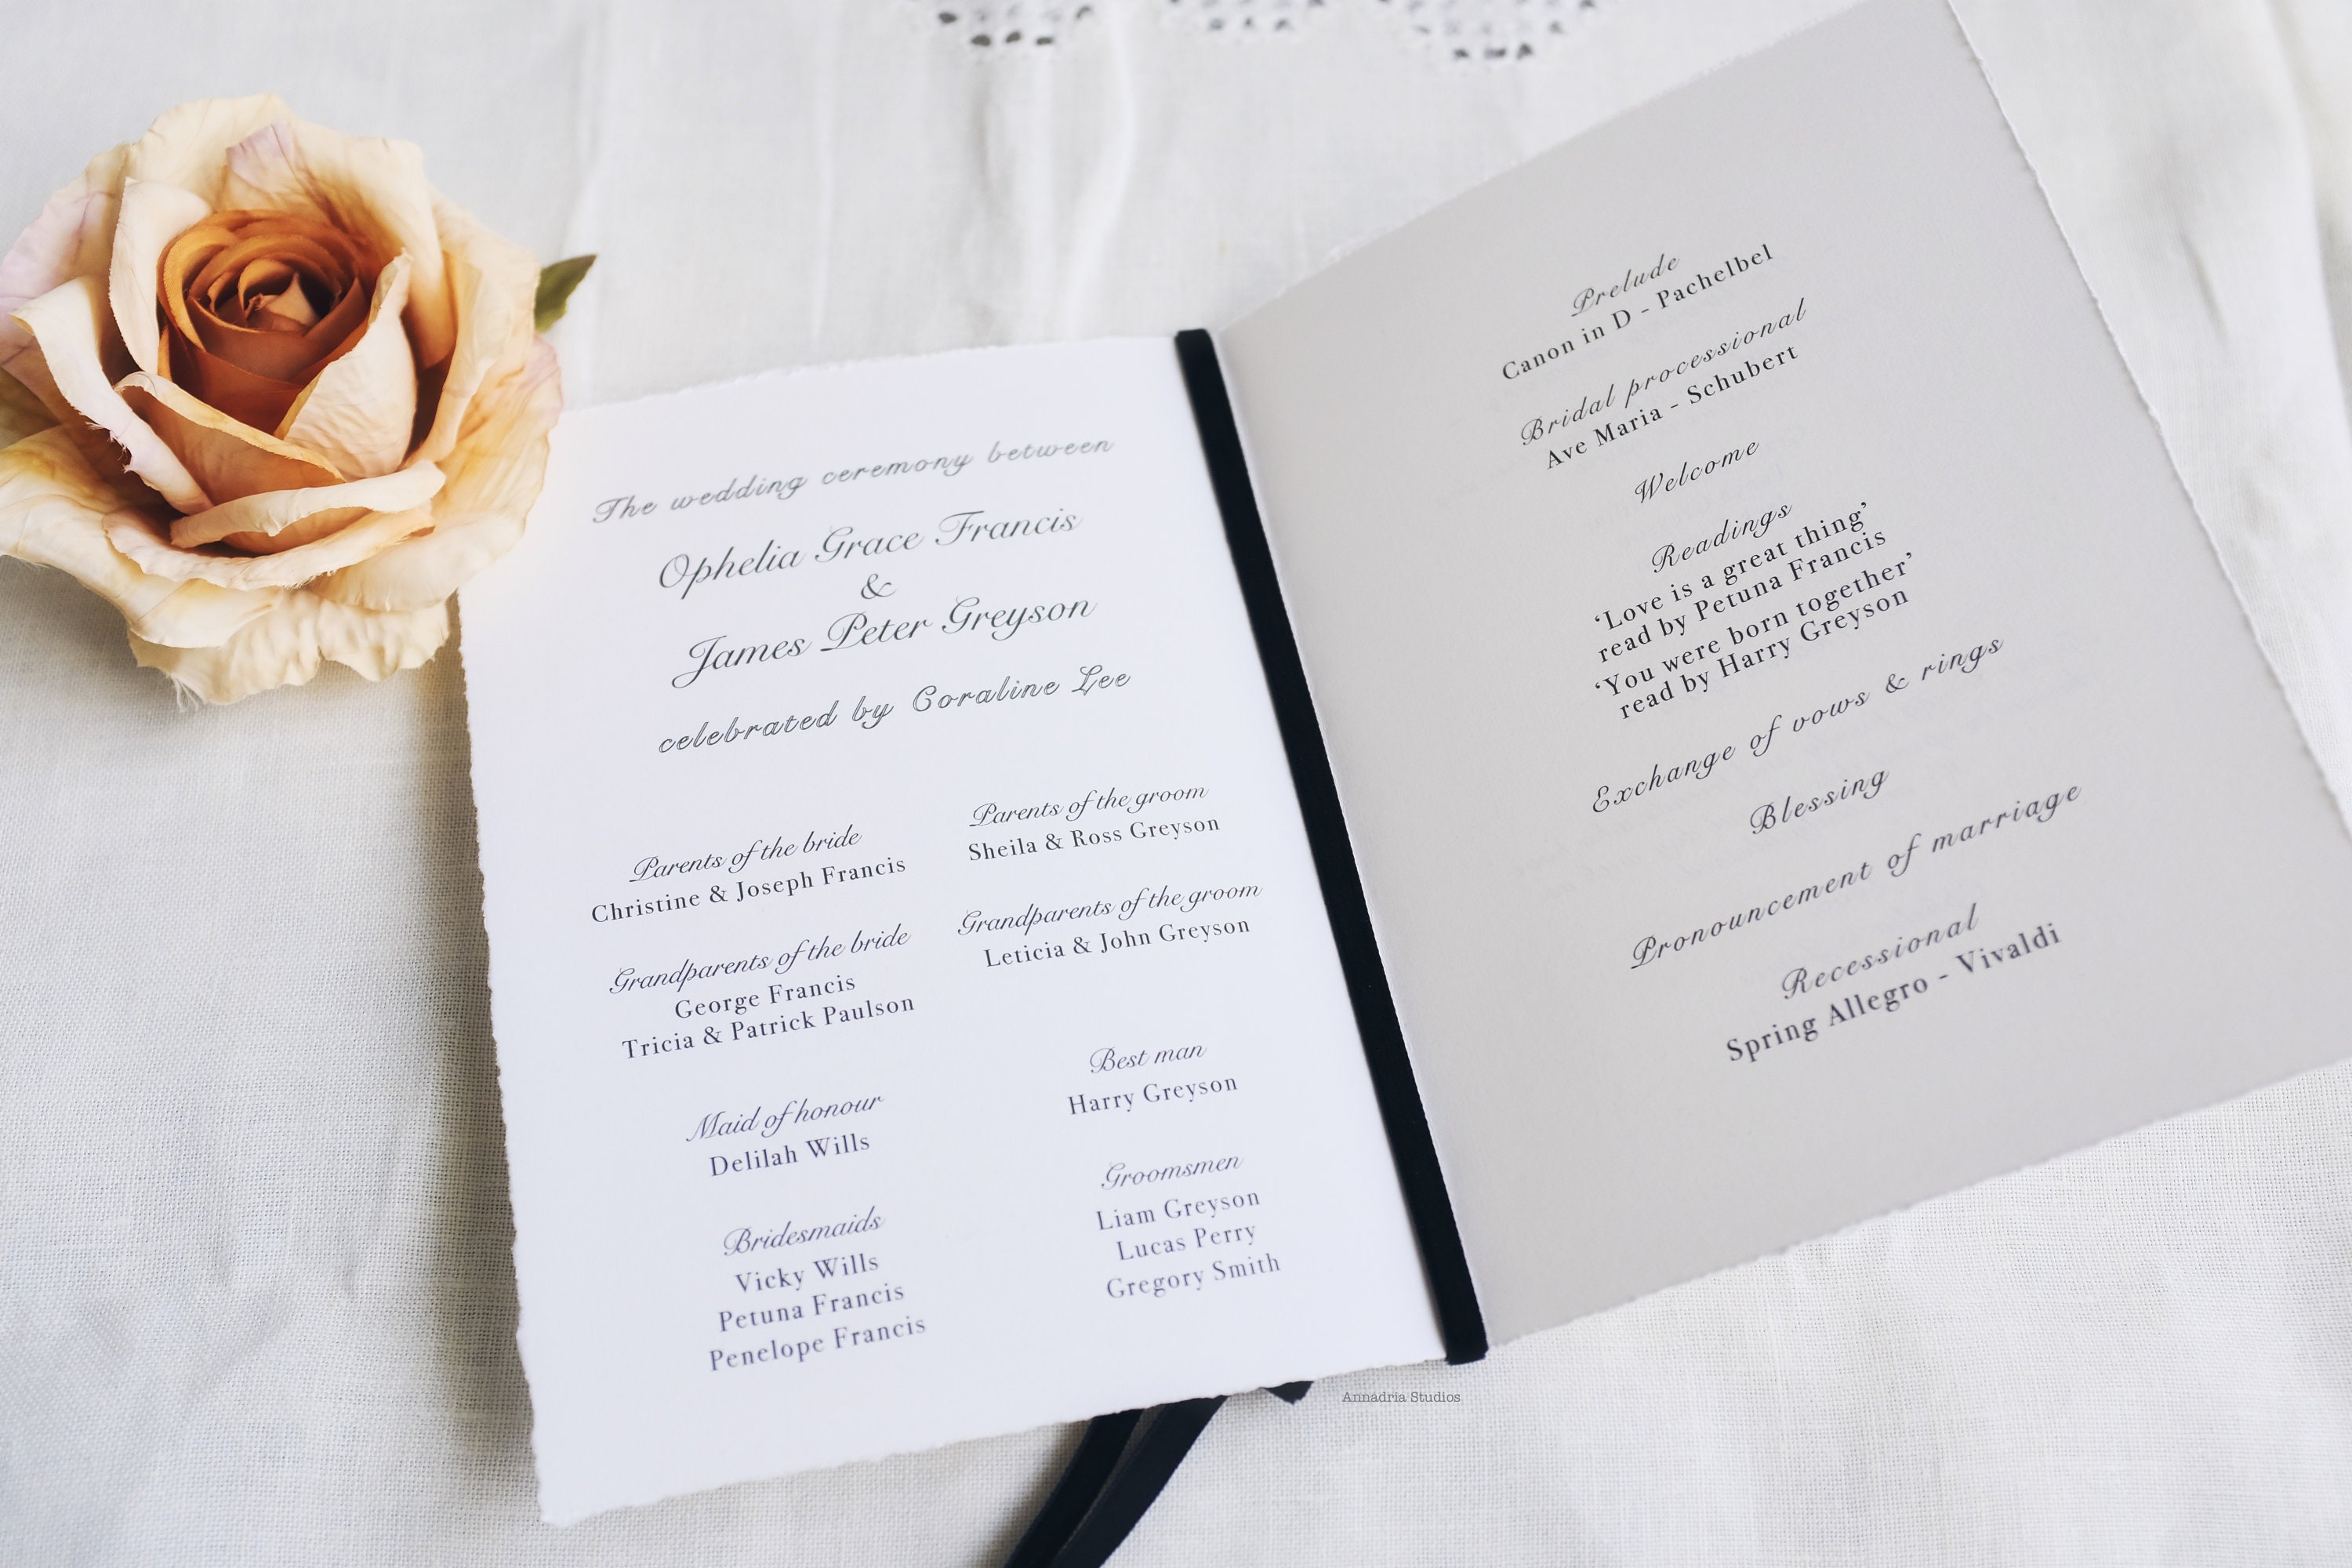 The wedding ceremony between
Ophelia Grace Francis
&
James Peter Greyson
celebrated by Coraline Lee
Parents of the bride
Christine & Joseph Francis
Parents of the groom
Sheila & Ross Greyson
Grandparents of the bride
George Francis
Tricia & Patrick Paulson
Grandparents of the groom
Leticia & John Greyson
Maid of honour
Delilah Wills
Best man
Harry Greyson
Bridesmaids
Vicky Wills
Petuna Francis
Penelope Francis
Groomsmen
Liam Greyson
Lucas Perry
Gregory Smith
Prelude
Canon in D - Pachelbel
Bridal processional
Ave Maria - Schubert
Welcome
Readings
‘Love is a great thing’
read by Petuna Francis
‘You were born together’
read by Harry Greyson
Exchange of vows & rings
Blessing
Pronouncement of marriage
Recessional
Spring Allegro - Vivaldi
Annadria Studios